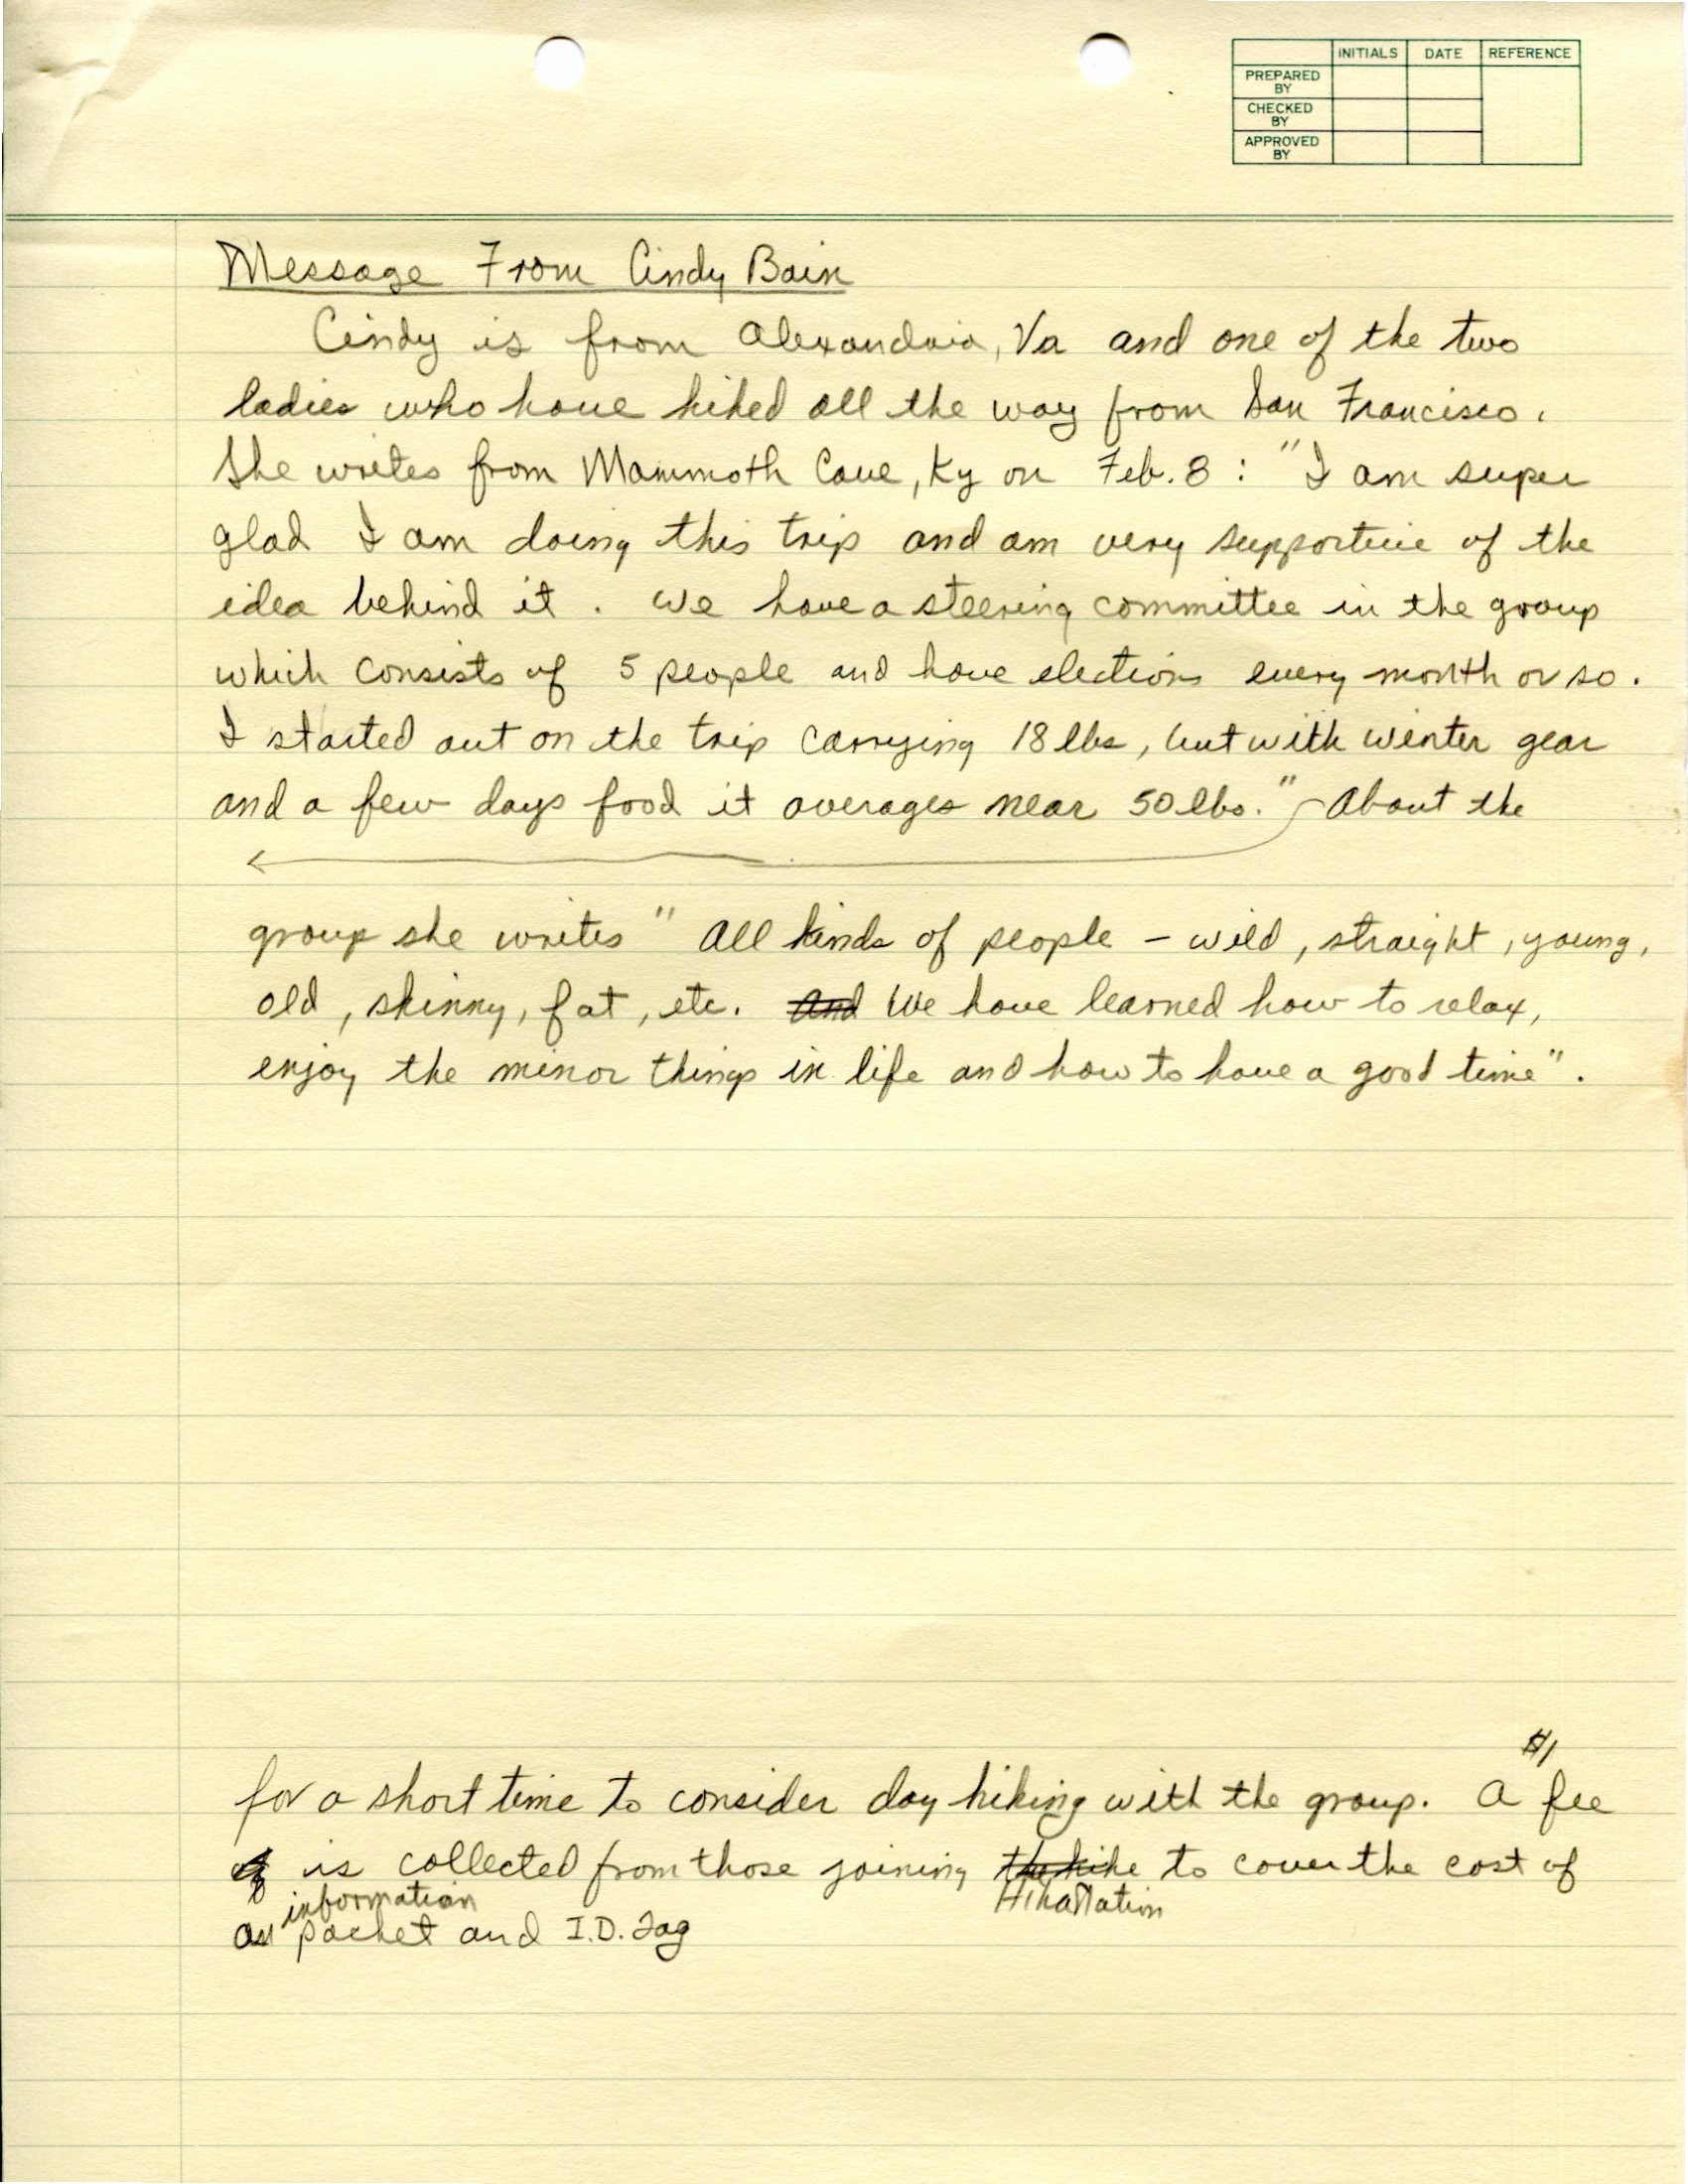 INITIALS DATE REFERENCE
PREPARED BY
CHECKED BY
APPROVED BY
Message From Cindy Bain
Cindy is from Alexandria, Va and one of the two
ladies who have hiked all the way from San Francisco.
She writes from Mammoth Cave, Ky on Feb. 8 : "I am super
glad I am doing this trip and am very supportive of the
idea behind it. We have a steering committee in the group
which consists of 5 people and have elections every month or so.
I started out on the trip carrying 18 lbs, but with winter gear
and a few days food it averages near 50 lbs." About the
group she writes "All kinds of people – wild, straight, young,
old, skinny, fat, etc. And We have learned how to relax,
enjoy the minor things in life and how to have a good time".
$1
for a short time to consider day hiking with the group. A fee
is collected from those joining the hike to cover the cost of
information HikaNation
an packet and I.D. Tag